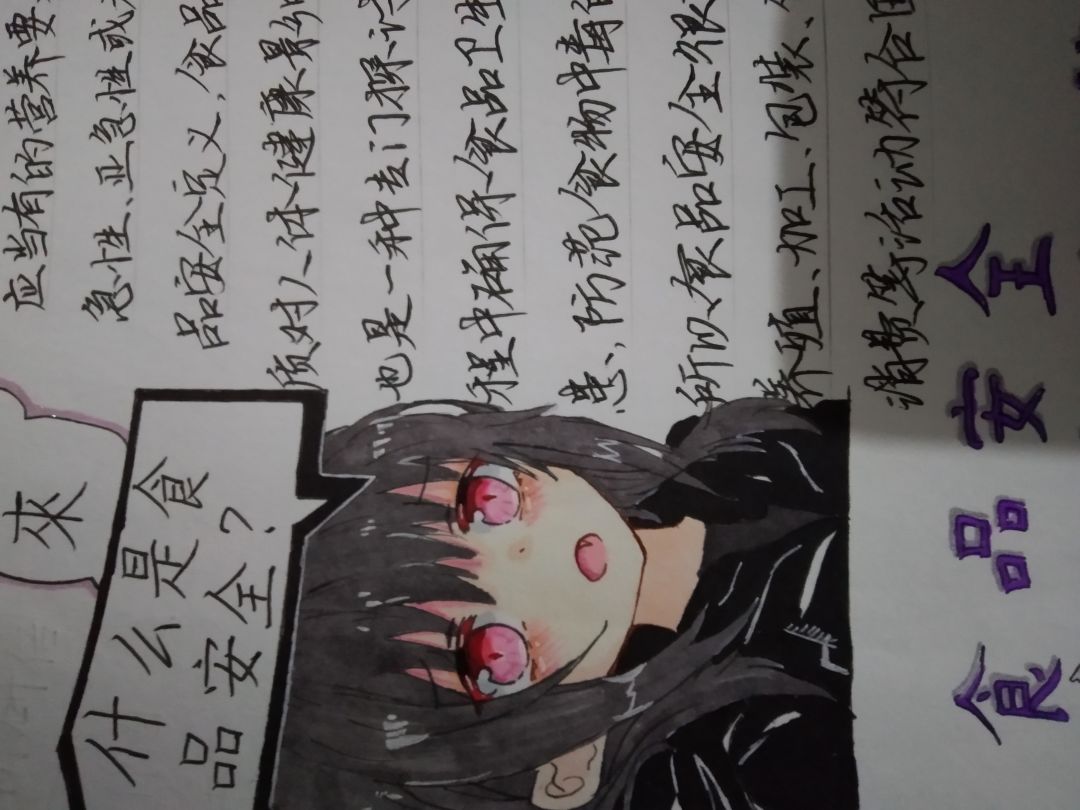 來
什么是食
品安全?
应当有的营养要
急性、亚急性或
品安全定义,食品
质对人体健康影
也是一种专门探
程中确保食品卫生
患、防范食物中毒
所以食品安全很
养殖、加工、包装、
消费等活动符合
食品安全